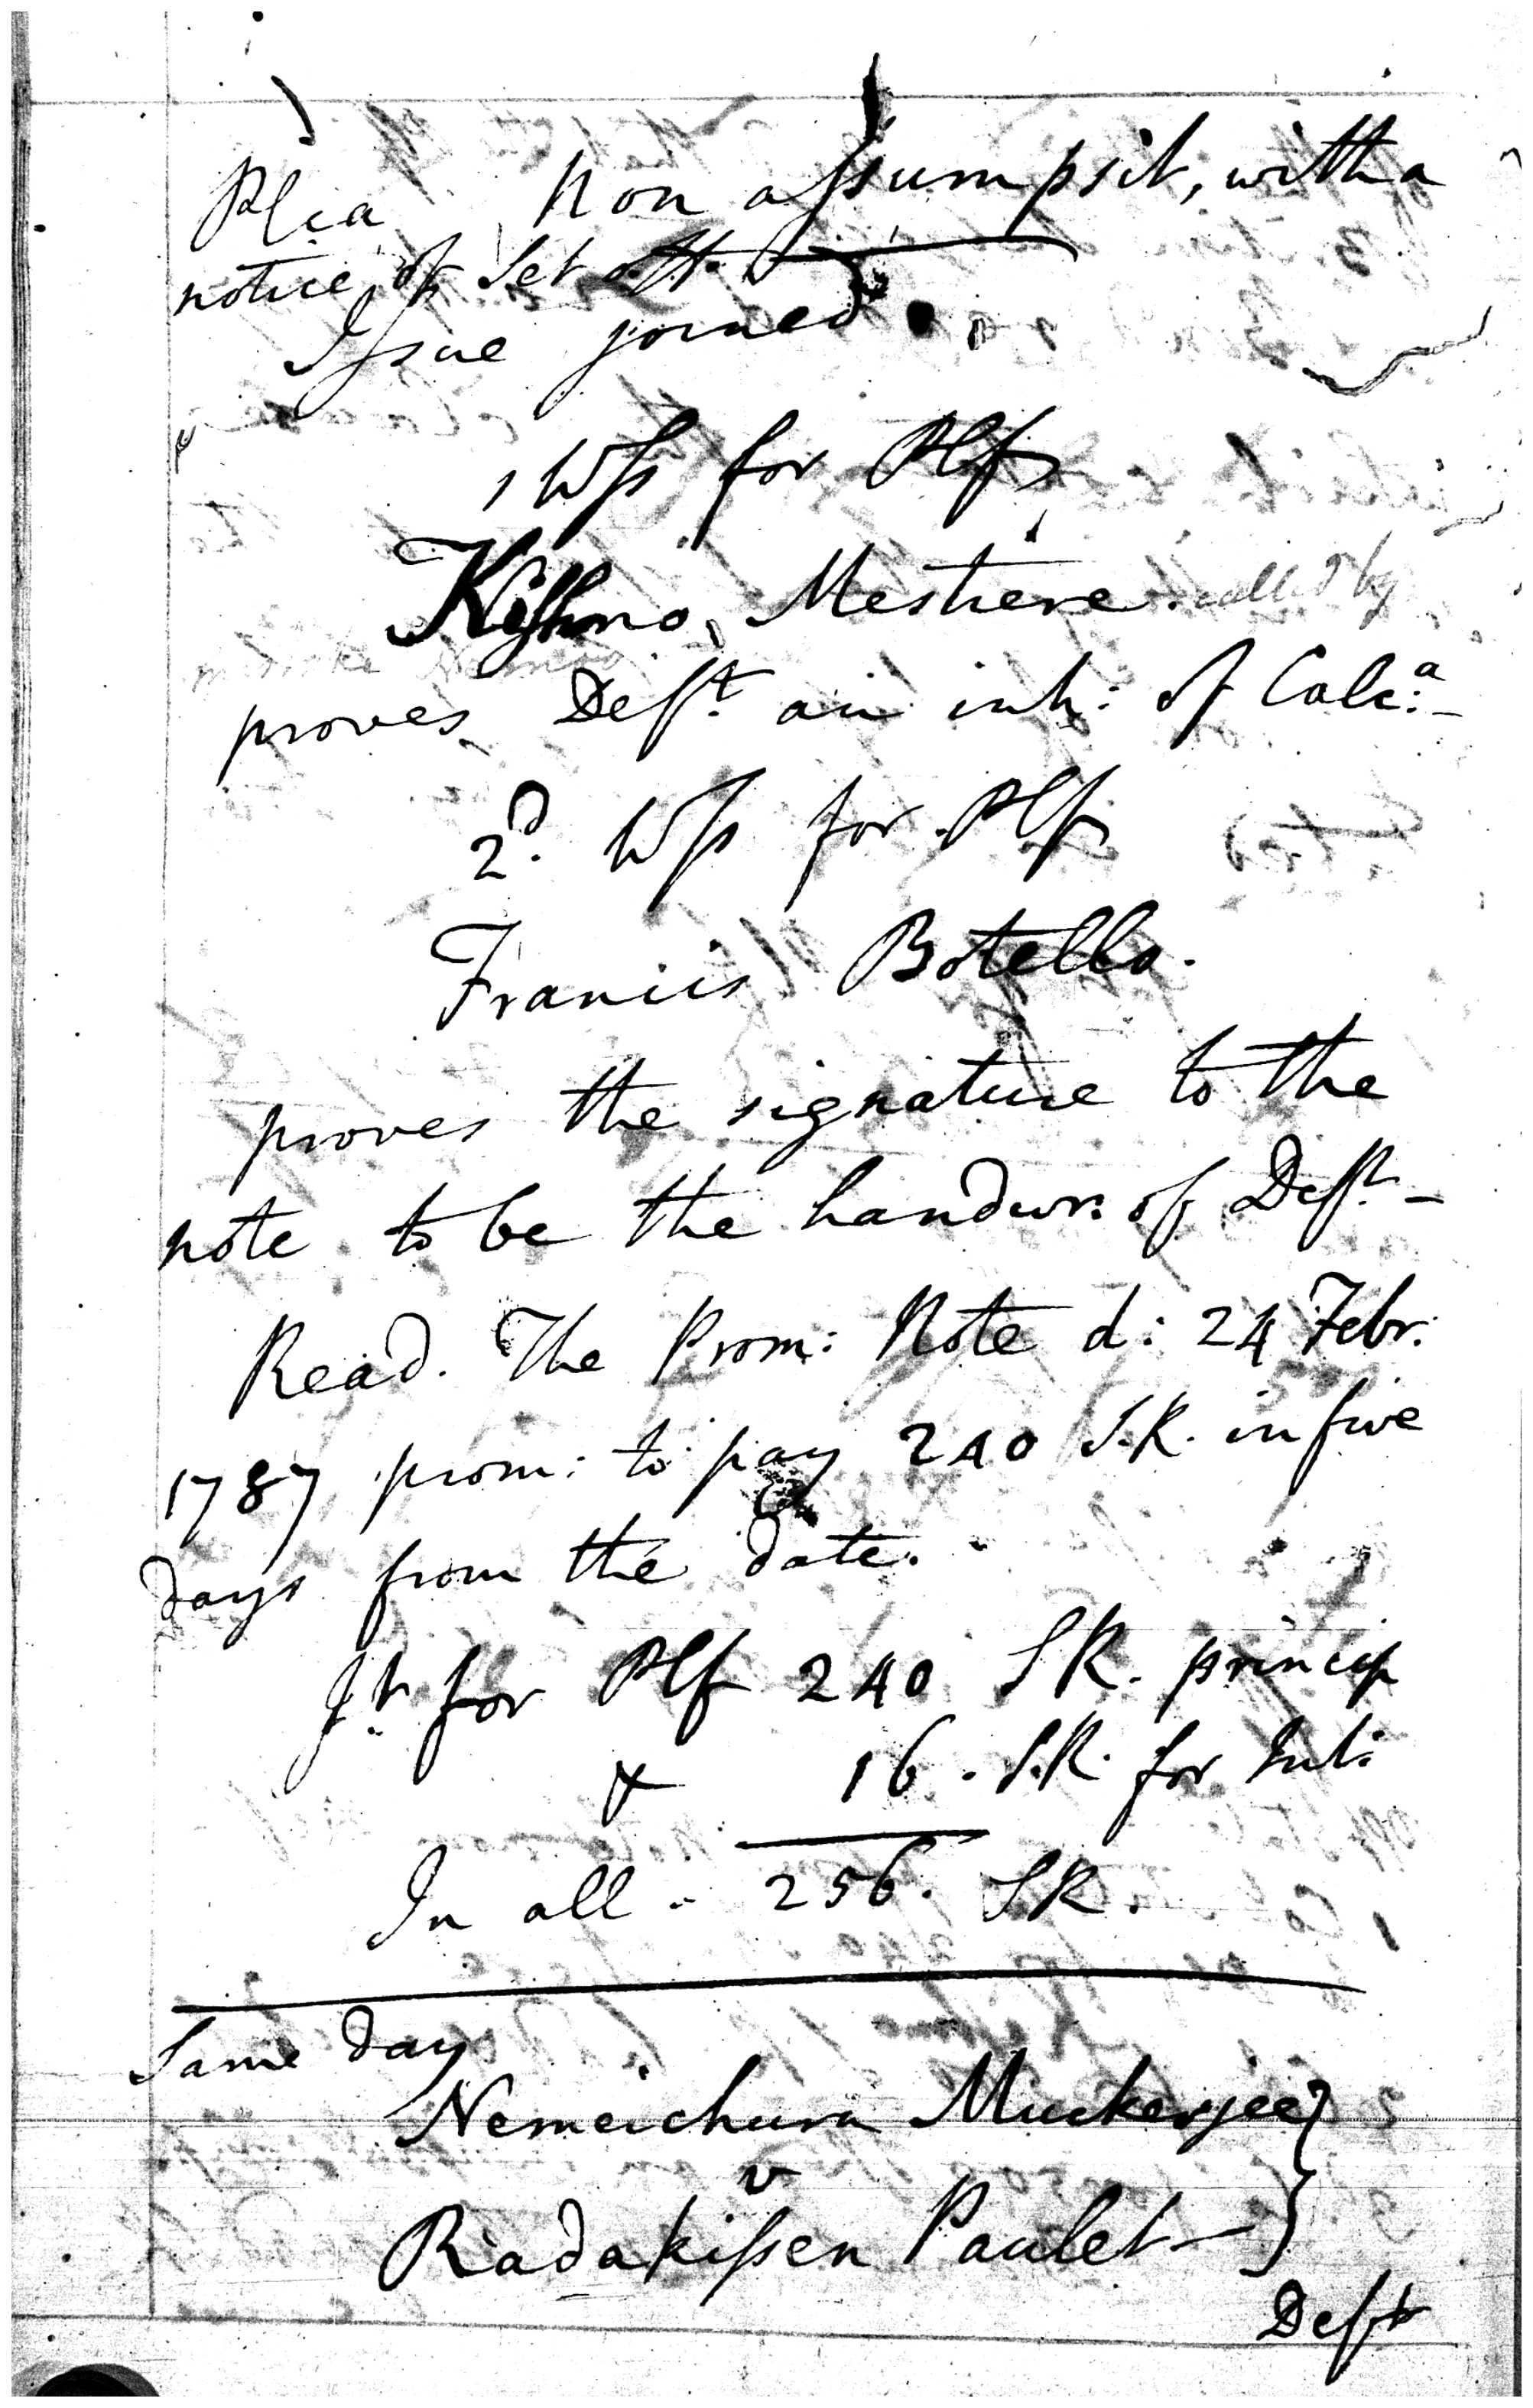 Plea Non assumpsit, with a
notice of Set off.
Issue joined.
1 Wss for Plf
Kishno Mestiere. called by
proves Deft. an inh: of Calc:a
2d. Wss for Plf
Francis Botello.
proves the signature to the
note to be the handwr: of Deft. -
Read. The Prom: Note d: 24 Febr:
1787 prom: to pay 240 S.R. in five
days from the date.
Jt. for Plf 240 SR. princip
& 16. S.R. for Int:
In all - 256. SR.
Same day
Nemeichurn Muckerjee }
v
Radakissen Paulet - }
Deft